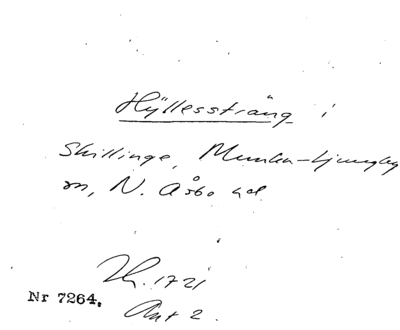 Hyllessträng i
Skillinge, Munka-Ljungby
sn, N. Åsbo hd
1721
Nr 7264.
Akt 2.